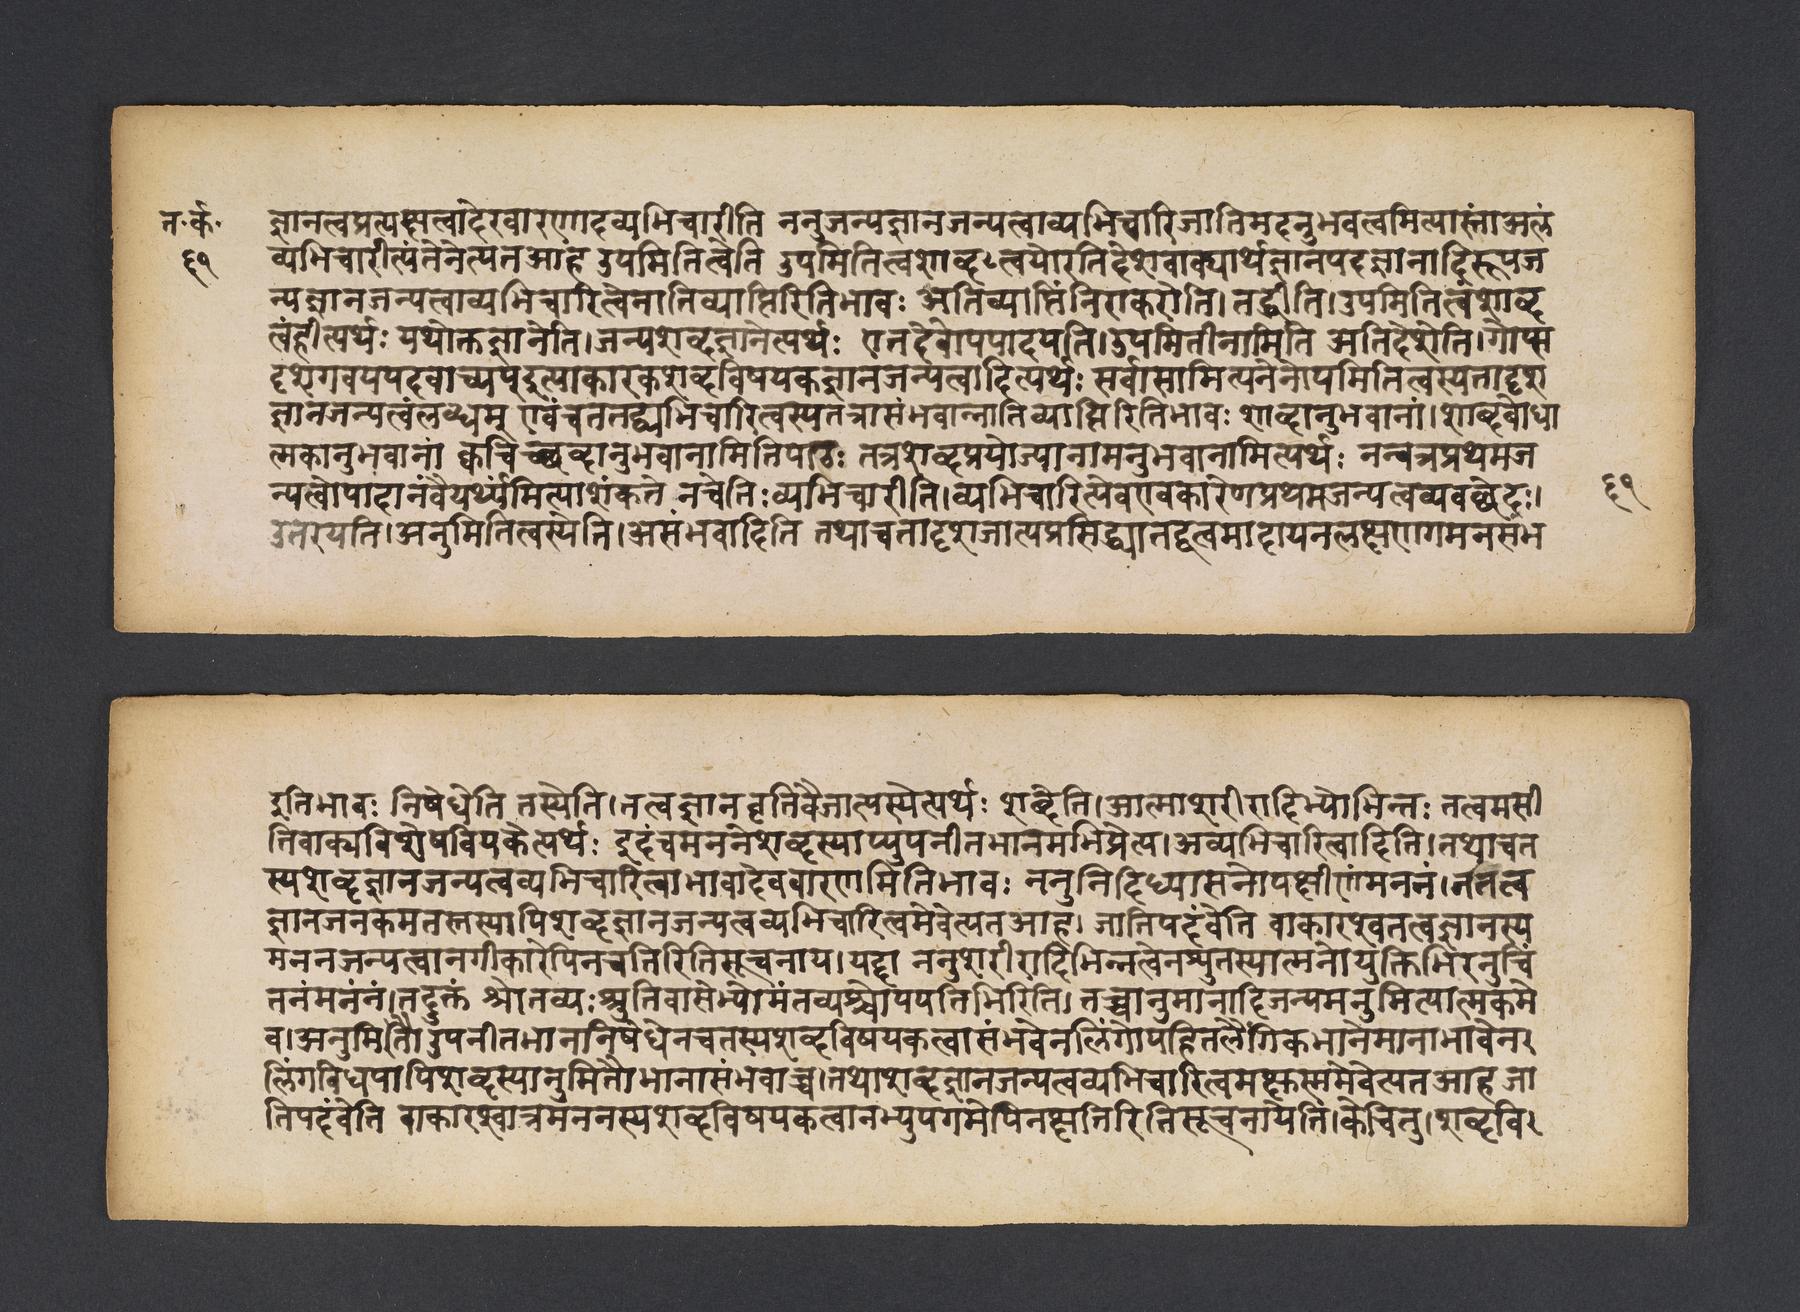 त॰र्क॰
६१
ज्ञानत्वप्रत्यक्षत्वादेरवारणादव्यभिचारीति ननुजन्यज्ञानजन्यत्वाव्यभिचारिजातिमदनुभवत्वमित्यास्तांअलं
व्यभिचारीत्यंतेनेत्यतआह उपमितित्वेति उपमितित्वशाब्दत्वयोरतिदेशवाक्यार्थज्ञानपदज्ञानादिरूपज
न्यज्ञानजन्यत्वाव्यभिचारित्वेनातिव्याप्तिरितिभावः अतिव्याप्तिंनिराकरोति।तद्धीति।उपमितित्वंशाब्द
त्वंहीत्यर्थः यथोक्तज्ञानेति।जन्यशाब्दज्ञानेत्यर्थः एतदेवोपपादयति।उपमितीनामिति अतिदेशेति।गोस
दृशगवयपदवाच्यइत्याकारकशाब्दविषयकज्ञानजन्यत्वादित्यर्थः सर्वासामित्यनेनोपमितित्वस्यतादृश
ज्ञानजन्यत्वंलब्धम् एवंचतत्तद्व्यभिचारित्वस्यतत्रासंभवान्नातिव्याप्तिरितिभावः शाब्दानुभवानां।शाब्दबोधा
त्मकानुभवानां क्वचिच्छब्दानुभवानामितिपाठः तत्रशब्दप्रयोज्यानामनुभवानामित्यर्थः नन्वत्रप्रथमज
न्यत्वोपादानंवैयर्थ्यमित्याशंकते नचेति:व्यभिचारीति।व्यभिचारित्येवएवकारेणप्रथमजन्यत्वव्यवच्छेदः।
उत्तरयति।अनुमितित्वस्येति।असंभवादिति तथाचतादृशजात्यप्रसिद्ध्यातद्वत्वमादायनलक्षणगमनसंभ
६१
इतिभावः निषेधेति तस्येति।तत्वज्ञानवृत्तिवैजात्यस्येत्यर्थः शब्देति।आत्माशरीरादिभ्योभिन्नः तत्वमसी
तिवाक्यविशेषविषयकेत्यर्थः इदंचमननेशब्दस्याप्युपनीतभानमभिप्रेत्य।अव्यभिचारित्वादिति।तथाचत
स्यशब्दज्ञानजन्यत्वव्यभिचारित्वाभावादेववारणमितिभावः ननुनिदिध्यासनोपक्षीणंमननं।नतत्व
ज्ञानजनकमतस्तस्यापिशब्दज्ञानजन्यत्वव्यभिचारित्वमेवेत्यतआह। जातिपदंवेति वाकारश्चतत्वज्ञानस्य
मननजन्यत्वानंगीकारेपिनक्षतिरितिसूचनाय।यद्वा ननुशरीरादिभिन्नत्वेनश्रुतस्यात्मनोयुक्तिभिरनुचिं
तनंमननं।तदुक्तं श्रोतव्यःश्रुतिवाक्येभ्योमंतव्यश्चोपपत्तिभिरिति। तच्चानुमानादिजन्यमनुमित्यात्मकमे
व।अनुमितौउपनीतभाननिषेधेनचतस्यशब्दविषयकत्वासंभवेनलिंगोपहितलैंगिकभानेमानाभावेन
लिंगविधयापिशब्दस्यानुमितौभानासंभवाच्च।तथाशब्दज्ञानजन्यत्वव्यभिचारित्वमक्षतमेवेत्यतआहजा
तिपदंवेति वाकारश्चात्रमननस्यशब्दविषयकत्वानभ्युपगमेपिनक्षतिरितिसूचनायेति।केचित्तु।शब्दवि